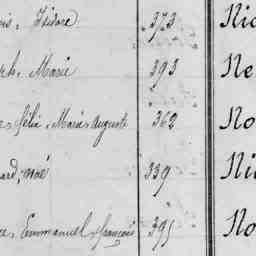 Isidore. 373 Nic
Marie 393 Ne
félix, Marie, Auguste 362 No
ard, noé 339 Nic
Emmanuel, françois 391 No